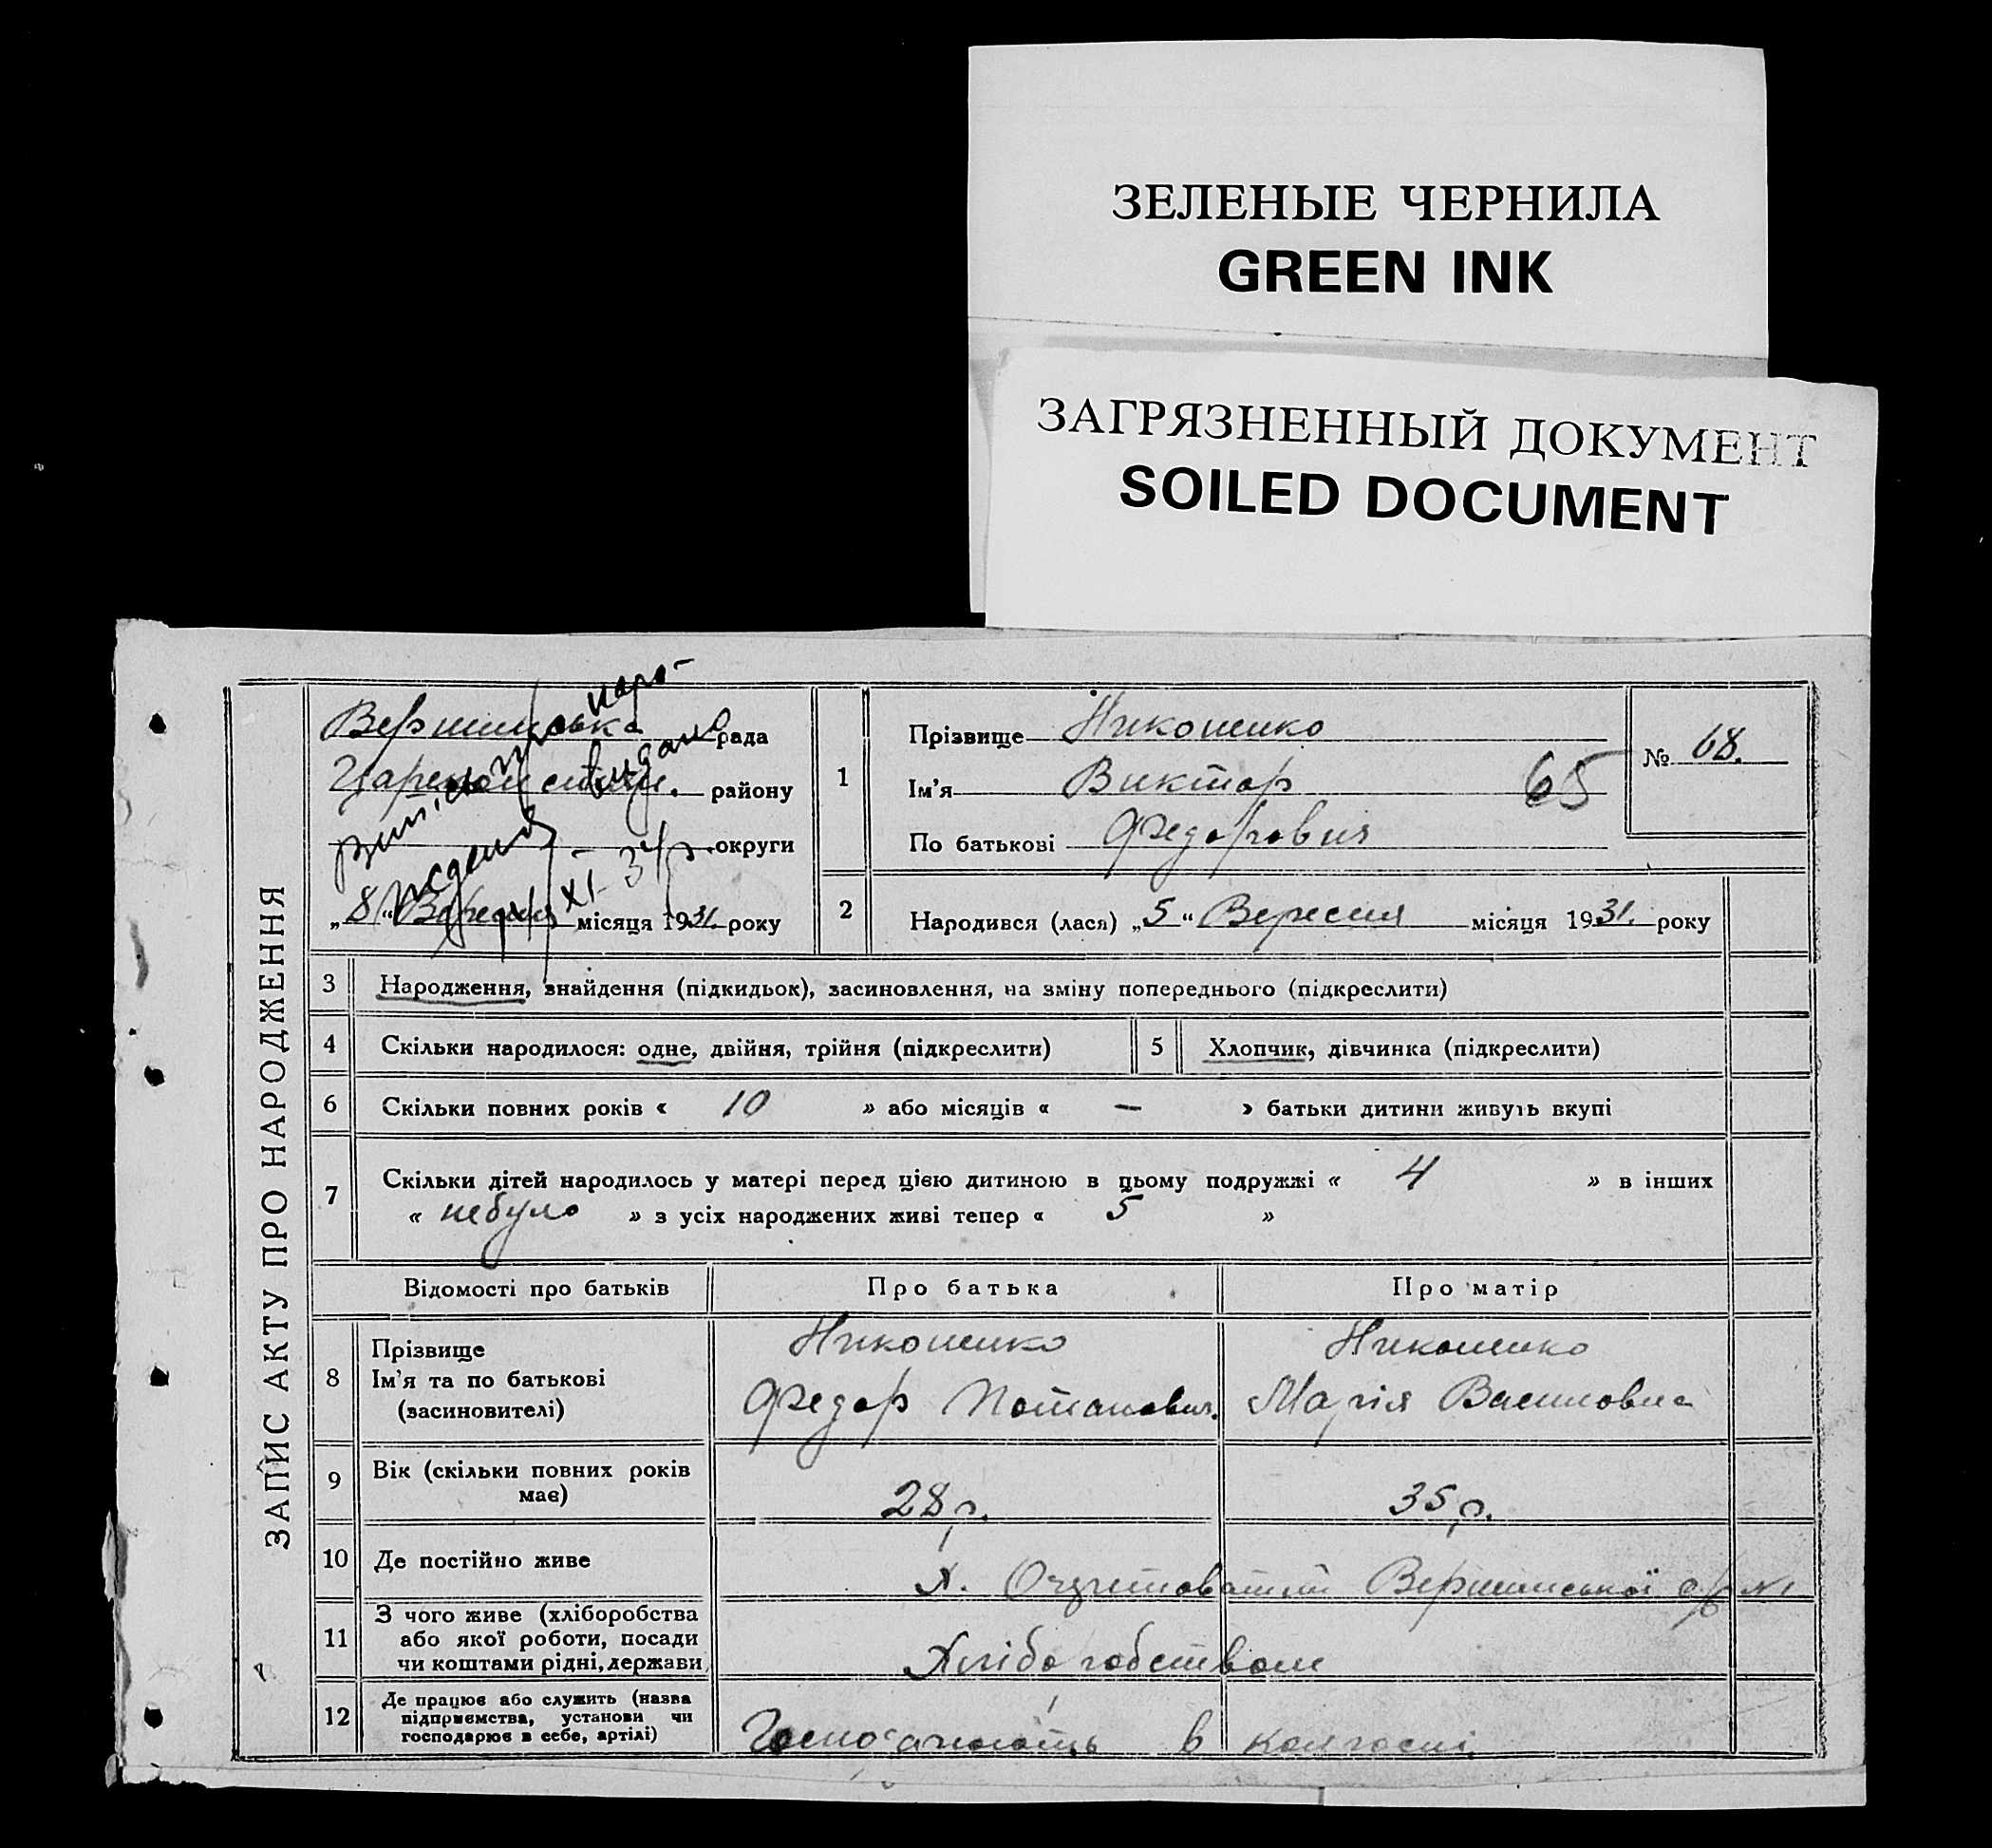 ЗЕЛЕНЫЕ ЧЕРНИЛА
GREEN INK
ЗАГРЯЗНЕННЫЙ ДОКУМЕНТ
SOILED DOCUMENT
ЗАПИС АКТУ ПРО НАРОДЖЕННЯ
Вершинська рада
району
округи
„8“ Вересня місяця 1931. року
видано
XI
1
Прізвище Никоненко
Ім'я Виктор
По батькові Федорович
65
№ 68.
2
Народився (лася) „5“ Вересня місяця 1931. року
3 Народження, знайдення (підкидьок), засиновлення, на зміну попереднього (підкреслити)
4 Скільки народилося: одне, двійня, трійня (підкреслити)
5 Хлопчик, дівчинка (підкреслити)
6 Скільки повних років « 10 » або місяців « — » батьки дитини живуть вкупі
7 Скільки дітей народилось у матері перед цією дитиною в цьому подружжі « 4 » в інших
« небуло » з усіх народжених живі тепер « 5 »
Відомості про батьків Про батька Про матір
8 Прізвище
Ім'я та по батькові
(засиновителі)
Никоненко
Федор Потапович.
Никоненко
Марія Василовна
9 Вік (скільки повних років
має)
28 р. 35 р.
10 Де постійно живе
х. Вершинської с/р
11 З чого живе (хліборобства
або якої роботи, посади
чи коштами рідні, держави
Хліборобством
12 Де працює або служить (назва
підприємства, установи чи
господарює в себе, артілі)
в колгоспі